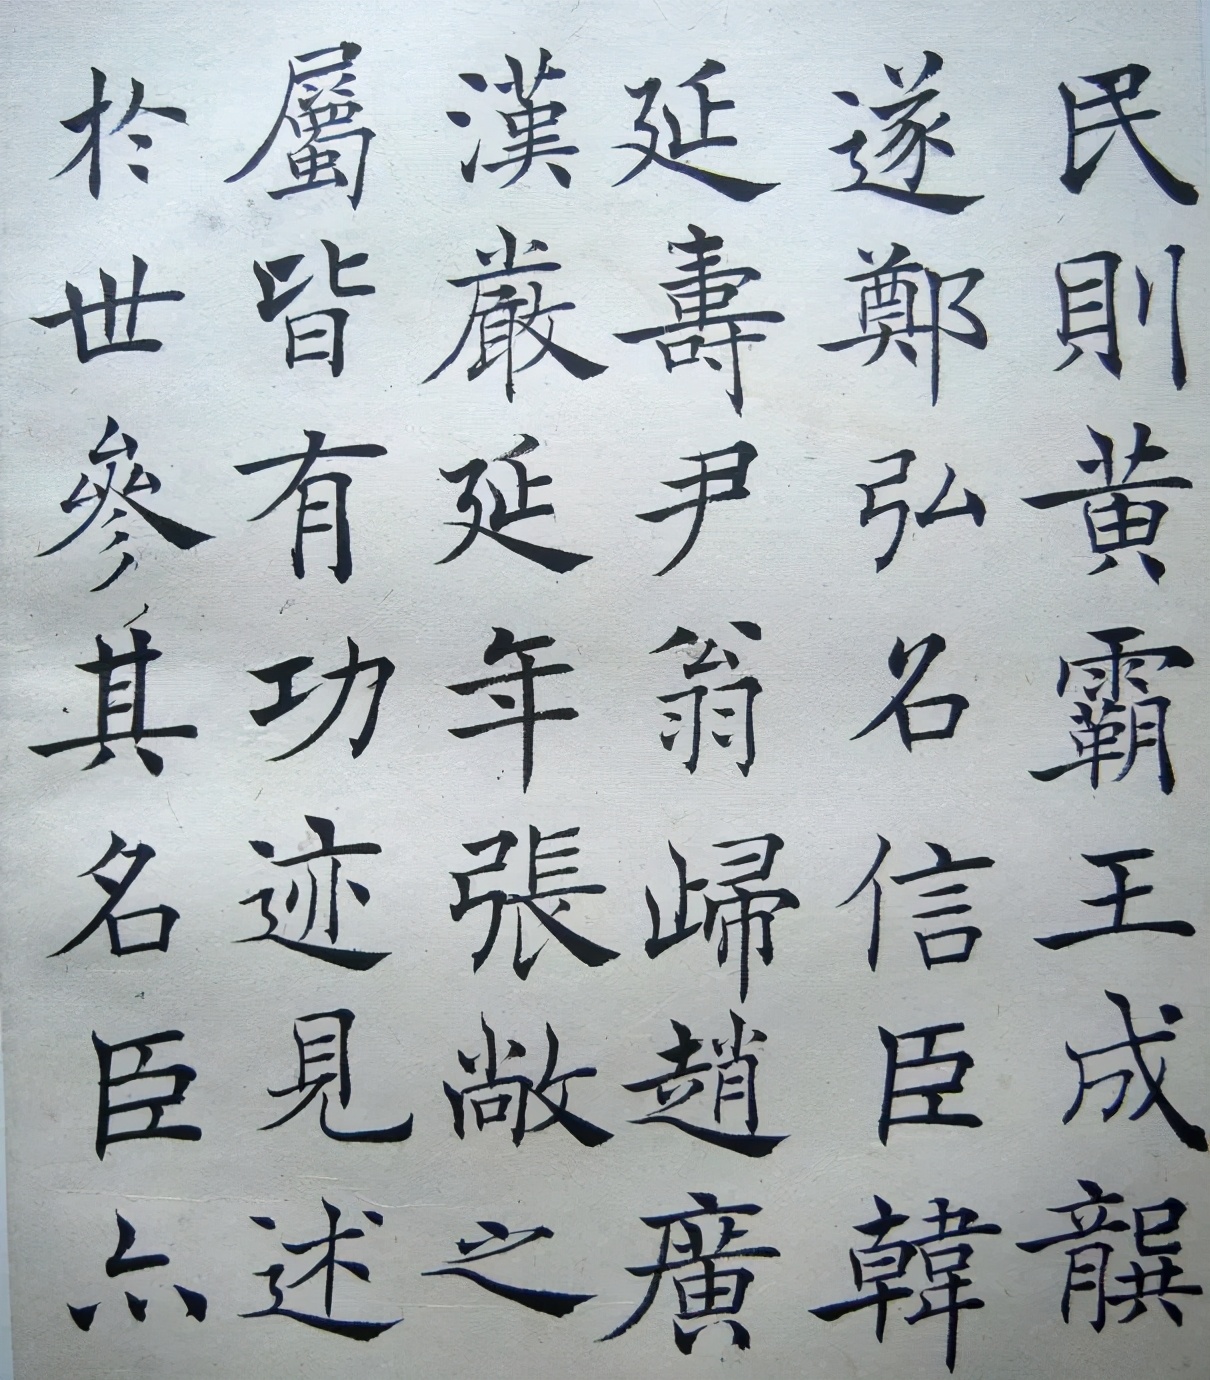 民則黄霸王成龔
遂鄭弘召信臣韓
延壽尹翁歸趙廣
漢嚴延年張敞之
屬皆有功迹見述
於世參其名臣亦